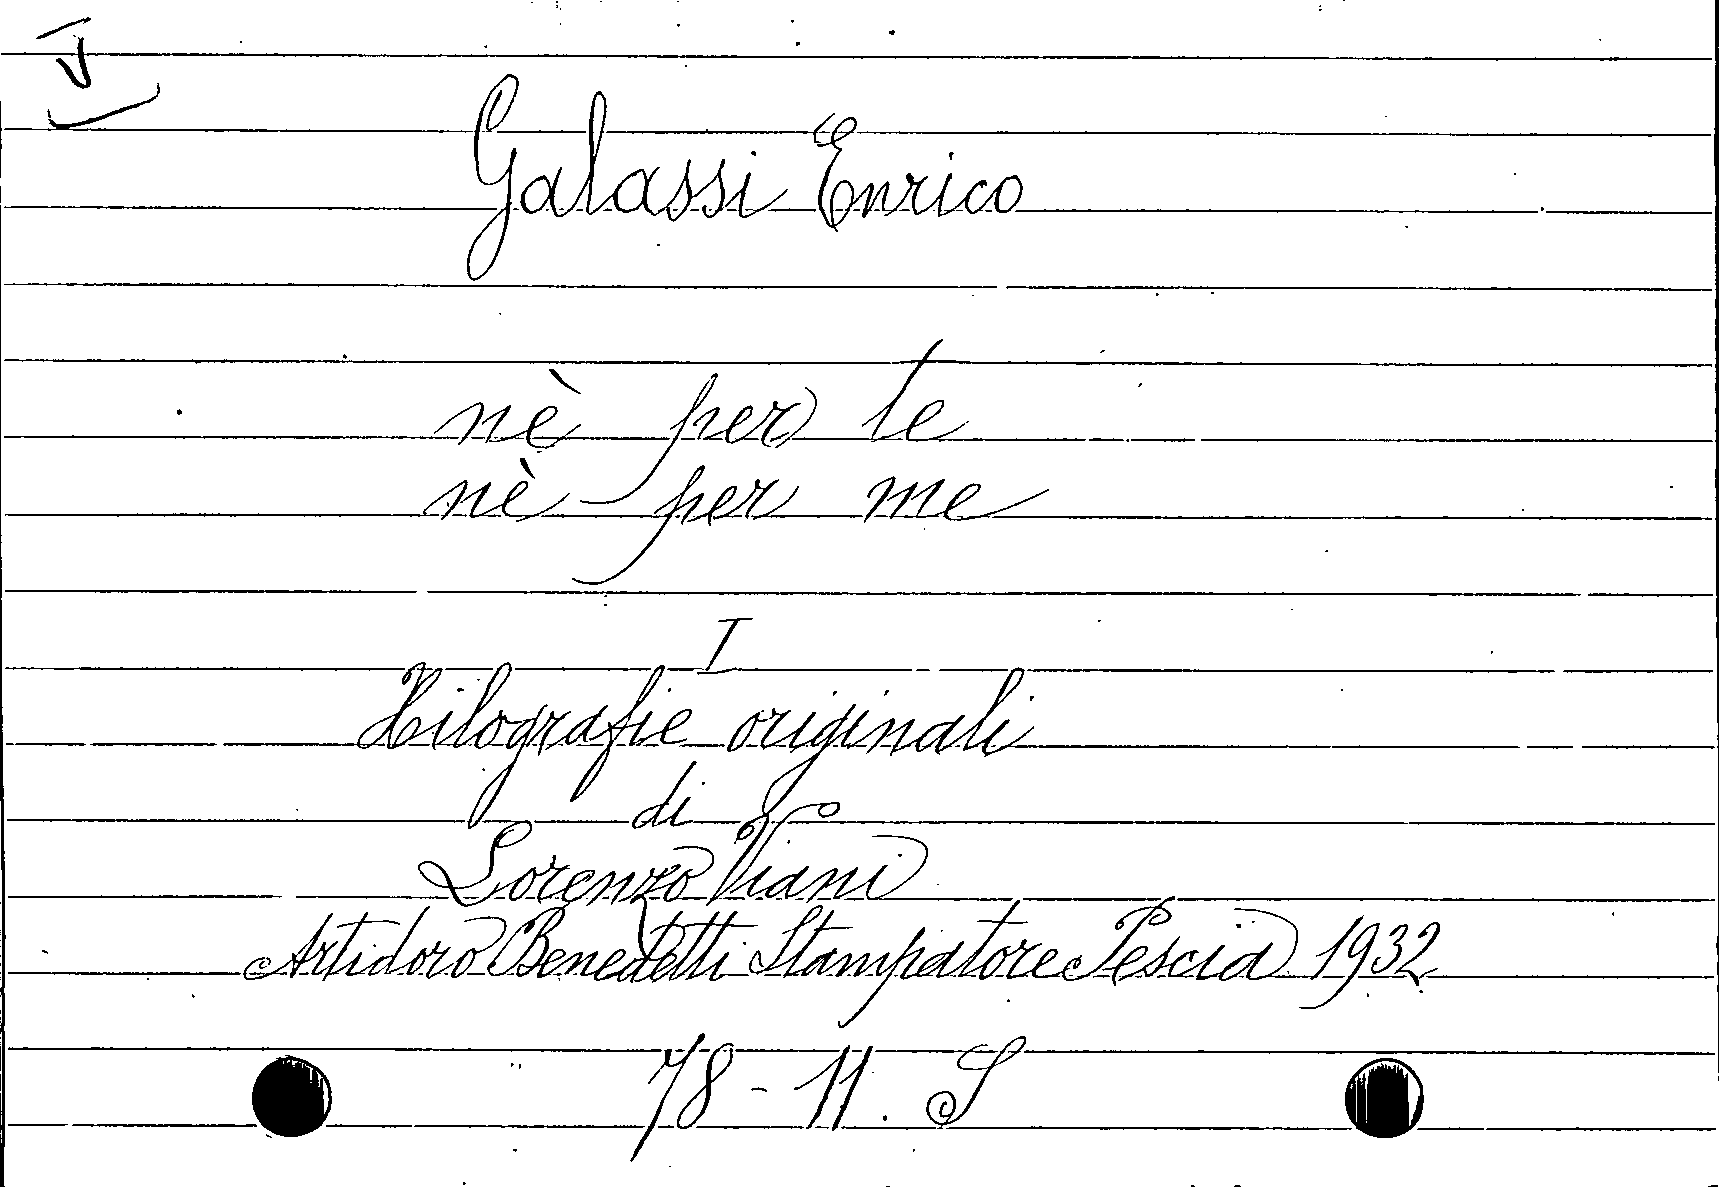 Galassi Enrico
nè per te
nè per me
I
Xilografie originali
di
Lorenzo Viani
Artidoro Benedetti Stampatore Pescia 1932
78 - 11. S